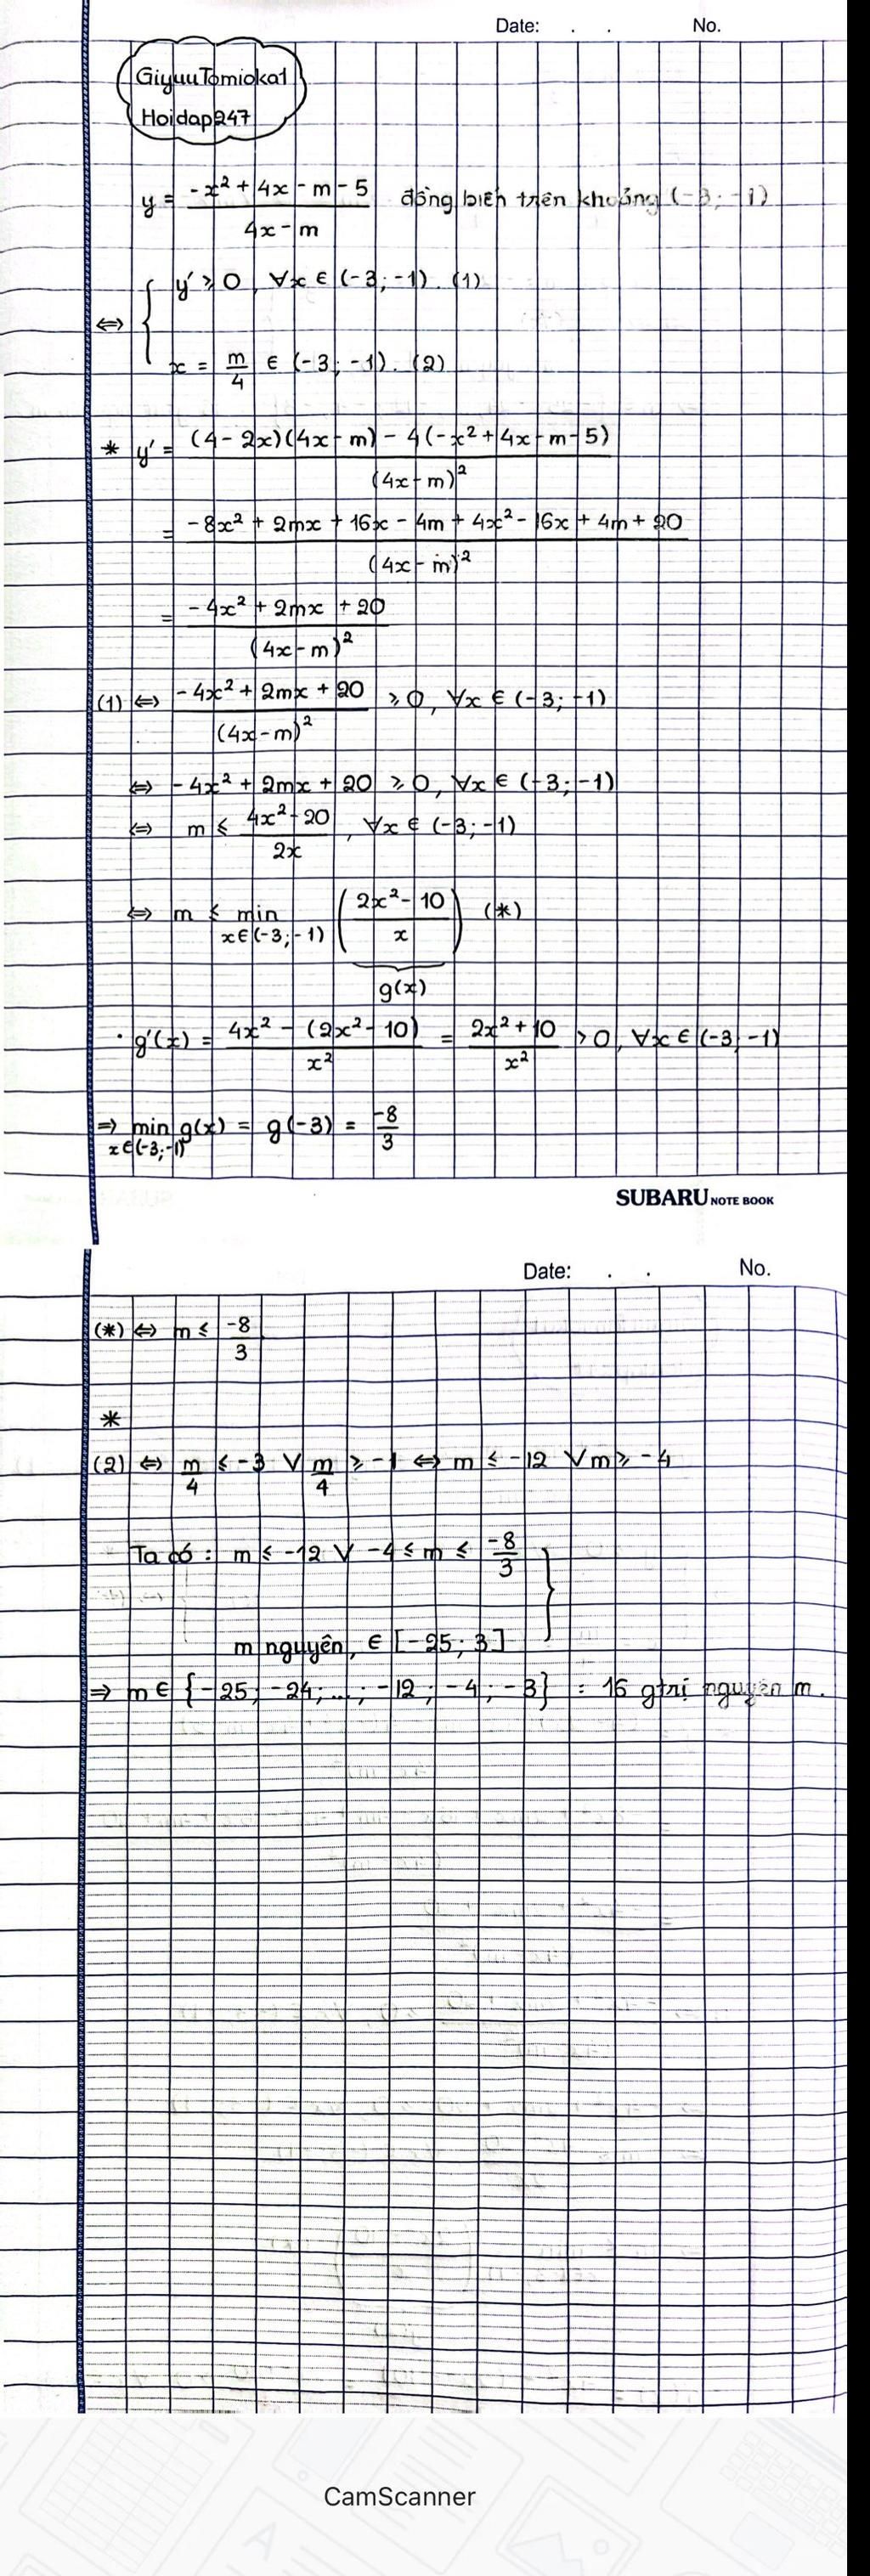 Date: . . No.
GiyuuTomioka1
Hoidap247
y = (-x² + 4x - m - 5)/(4x - m) đồng biến trên khoảng (-3; -1)
⇔ { y' ⩾ 0, ∀x ∈ (-3; -1). (1)
x = m/4 ∈ (-3; -1). (2)
* y' = ((4 - 2x)(4x - m) - 4(-x² + 4x - m - 5))/(4x - m)²
= (-8x² + 2mx + 16x - 4m + 4x² - 16x + 4m + 20)/(4x - m)²
= (-4x² + 2mx + 20)/(4x - m)²
(1) ⇔ (-4x² + 2mx + 20)/(4x - m)² ⩾ 0, ∀x ∈ (-3; -1)
⇔ -4x² + 2mx + 20 ⩾ 0, ∀x ∈ (-3; -1)
⇔ m ⩽ (4x² - 20)/2x, ∀x ∈ (-3; -1)
⇔ m ⩽ min x∈(-3; -1) ((2x² - 10)/x) (*)
g(x)
· g'(x) = (4x² - (2x² - 10))/x² = (2x² + 10)/x² > 0, ∀x ∈ (-3; -1)
⇒ min x∈(-3; -1) g(x) = g(-3) = -8/3
SUBARU NOTE BOOK
Date: . . No.
(*) ⇔ m ⩽ -8/3
*
(2) ⇔ m/4 ⩽ -3 ∨ m/4 ⩾ -1 ⇔ m ⩽ -12 ∨ m ⩾ -4
Ta có : m ⩽ -12 ∨ -4 ⩽ m ⩽ -8/3 }
m nguyên, ∈ [-25; 3]
⇒ m ∈ {-25; -24; ...; -12; -4; -3} : 16 gtrị nguyên m.
CamScanner